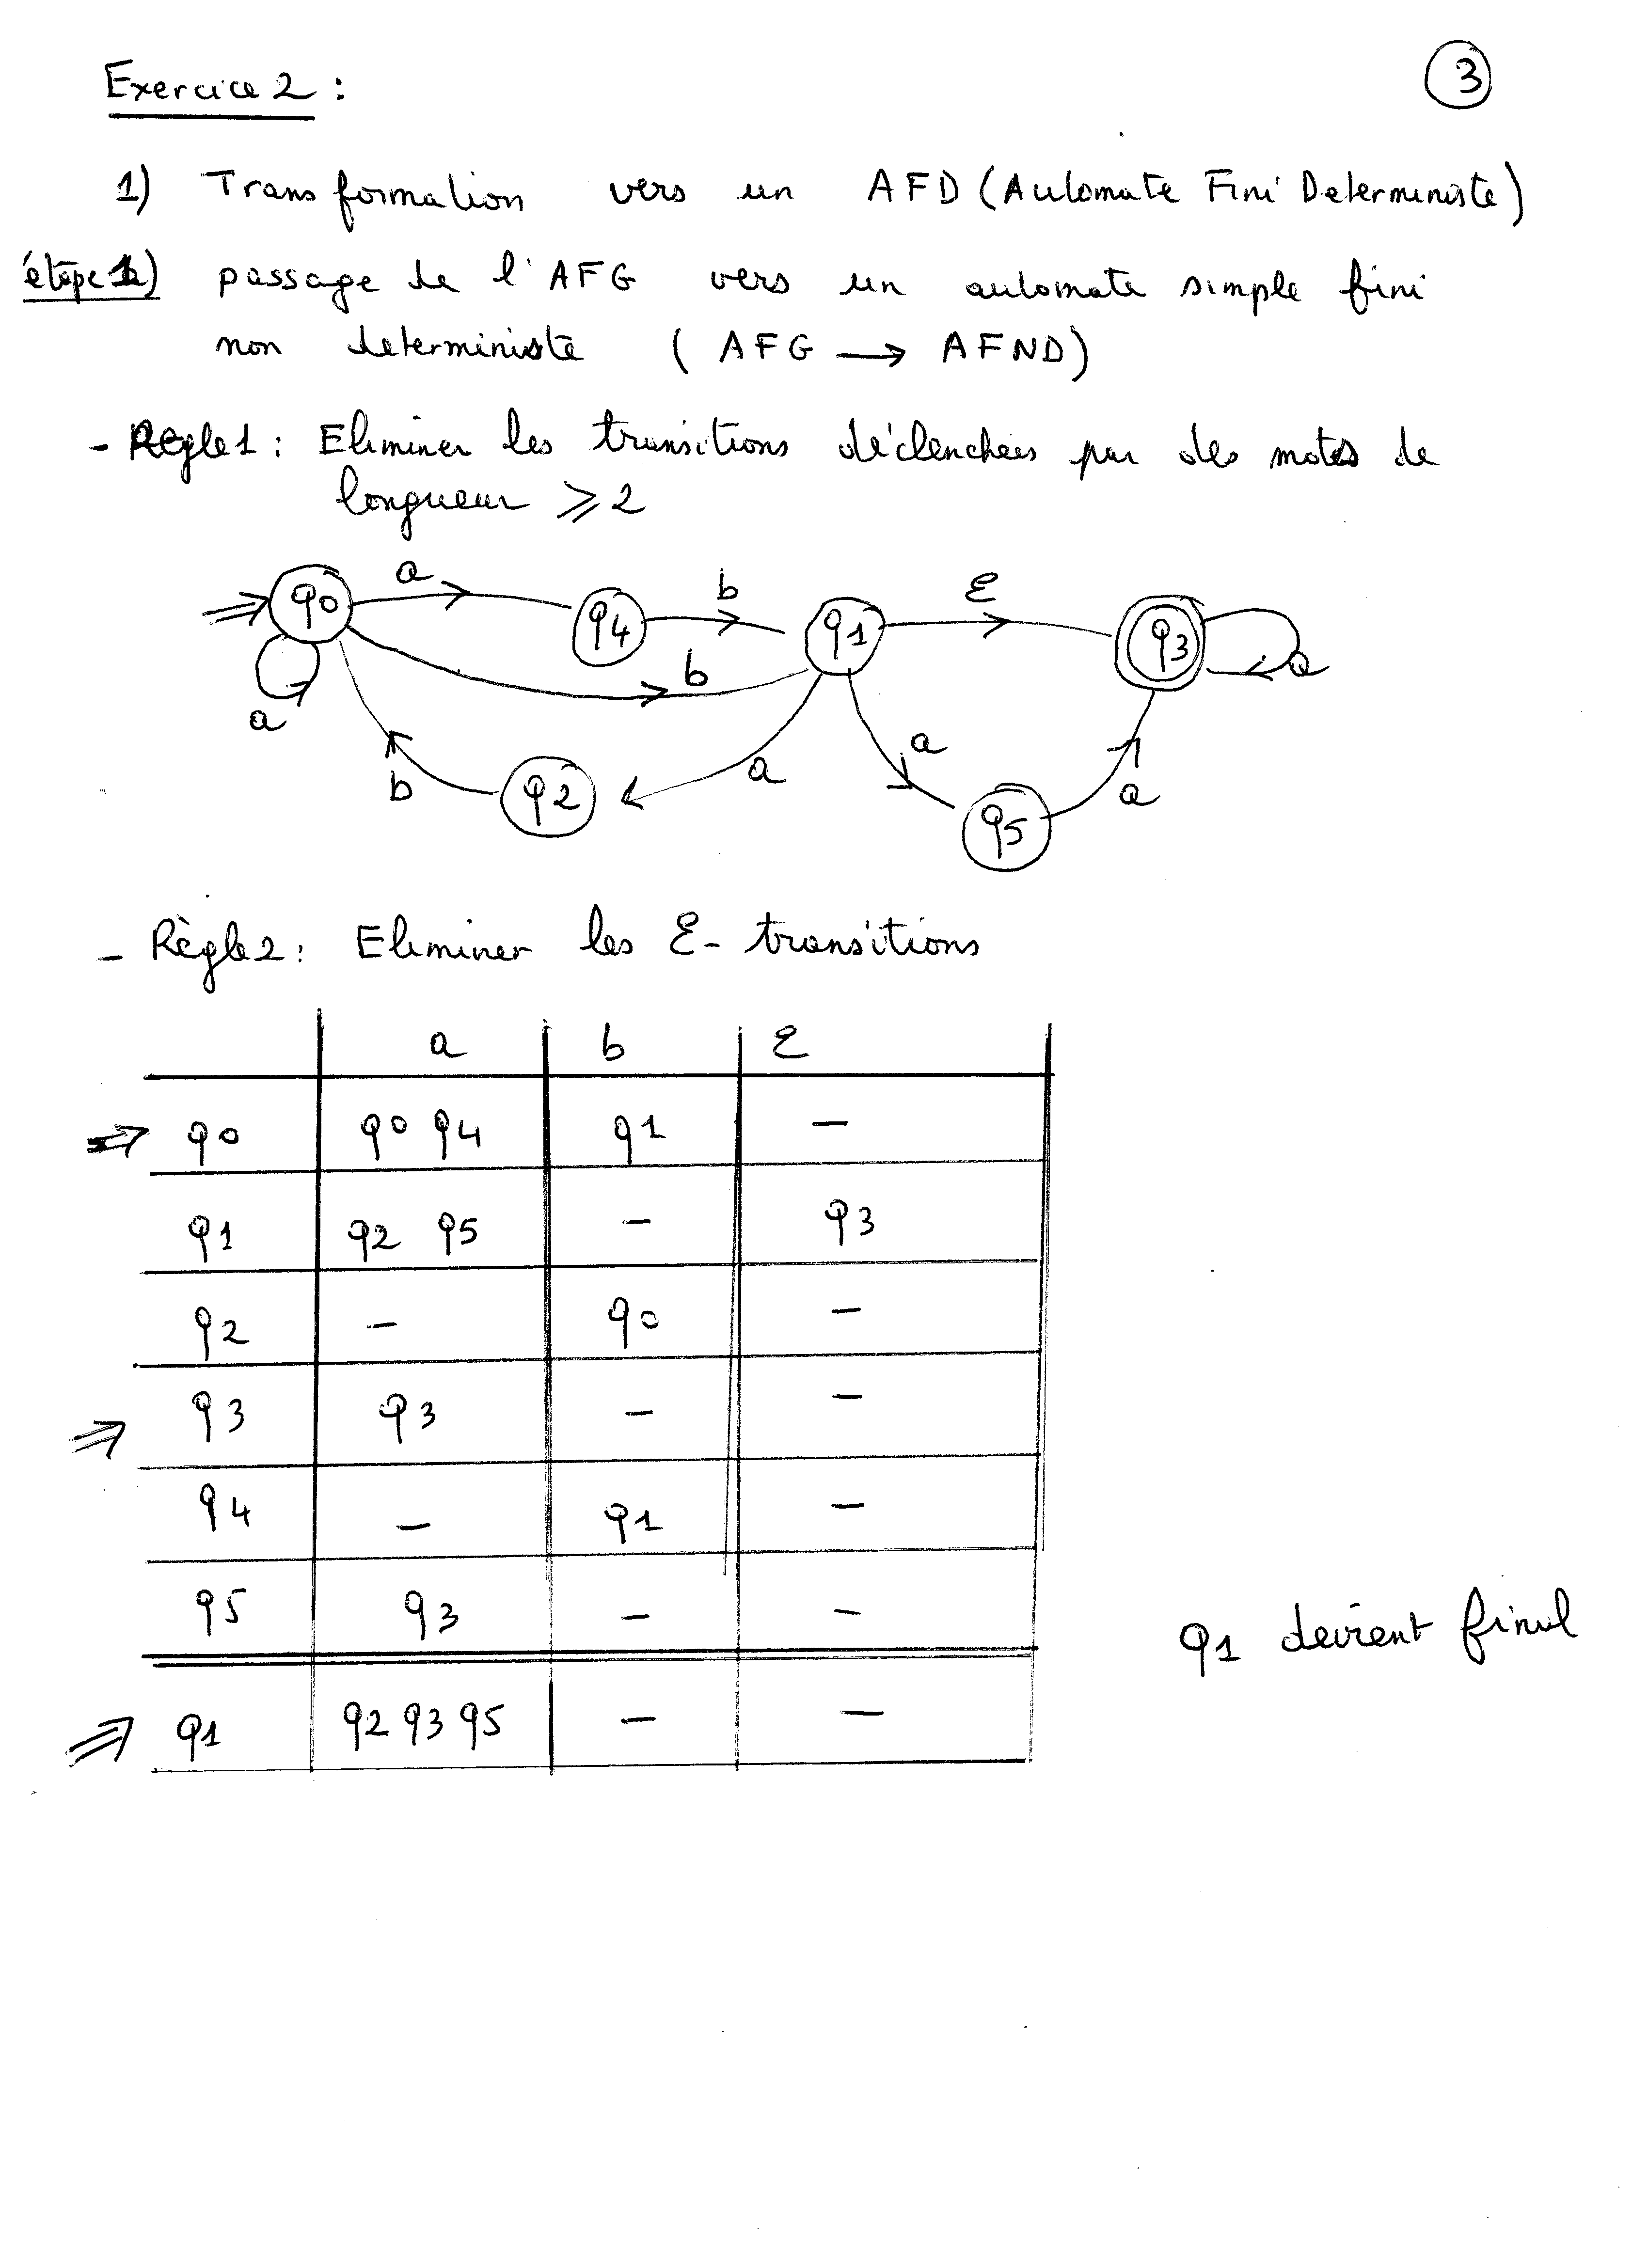 Exercice 2 :
3
1) Transformation vers un AFD (Automate Fini Deterministe)
étape 1) passage de l'AFG vers un automate simple fini
non deterministe ( AFG → AFND)
- Règle1 : Eliminer les transitions déclenchées par des mots de
longueur ⩾ 2
a b ε
q0 q4 q1 q3
b a
a a
b q2 a q5 a
- Règle2 : Eliminer les ε- transitions
a b ε
⇒ q0 q0 q4 q1 −
q1 q2 q5 − q3
q2 − q0 −
⇒ q3 q3 − −
q4 − q1 −
q5 q3 − −
q1 devient final
⇒ q1 q2 q3 q5 − −